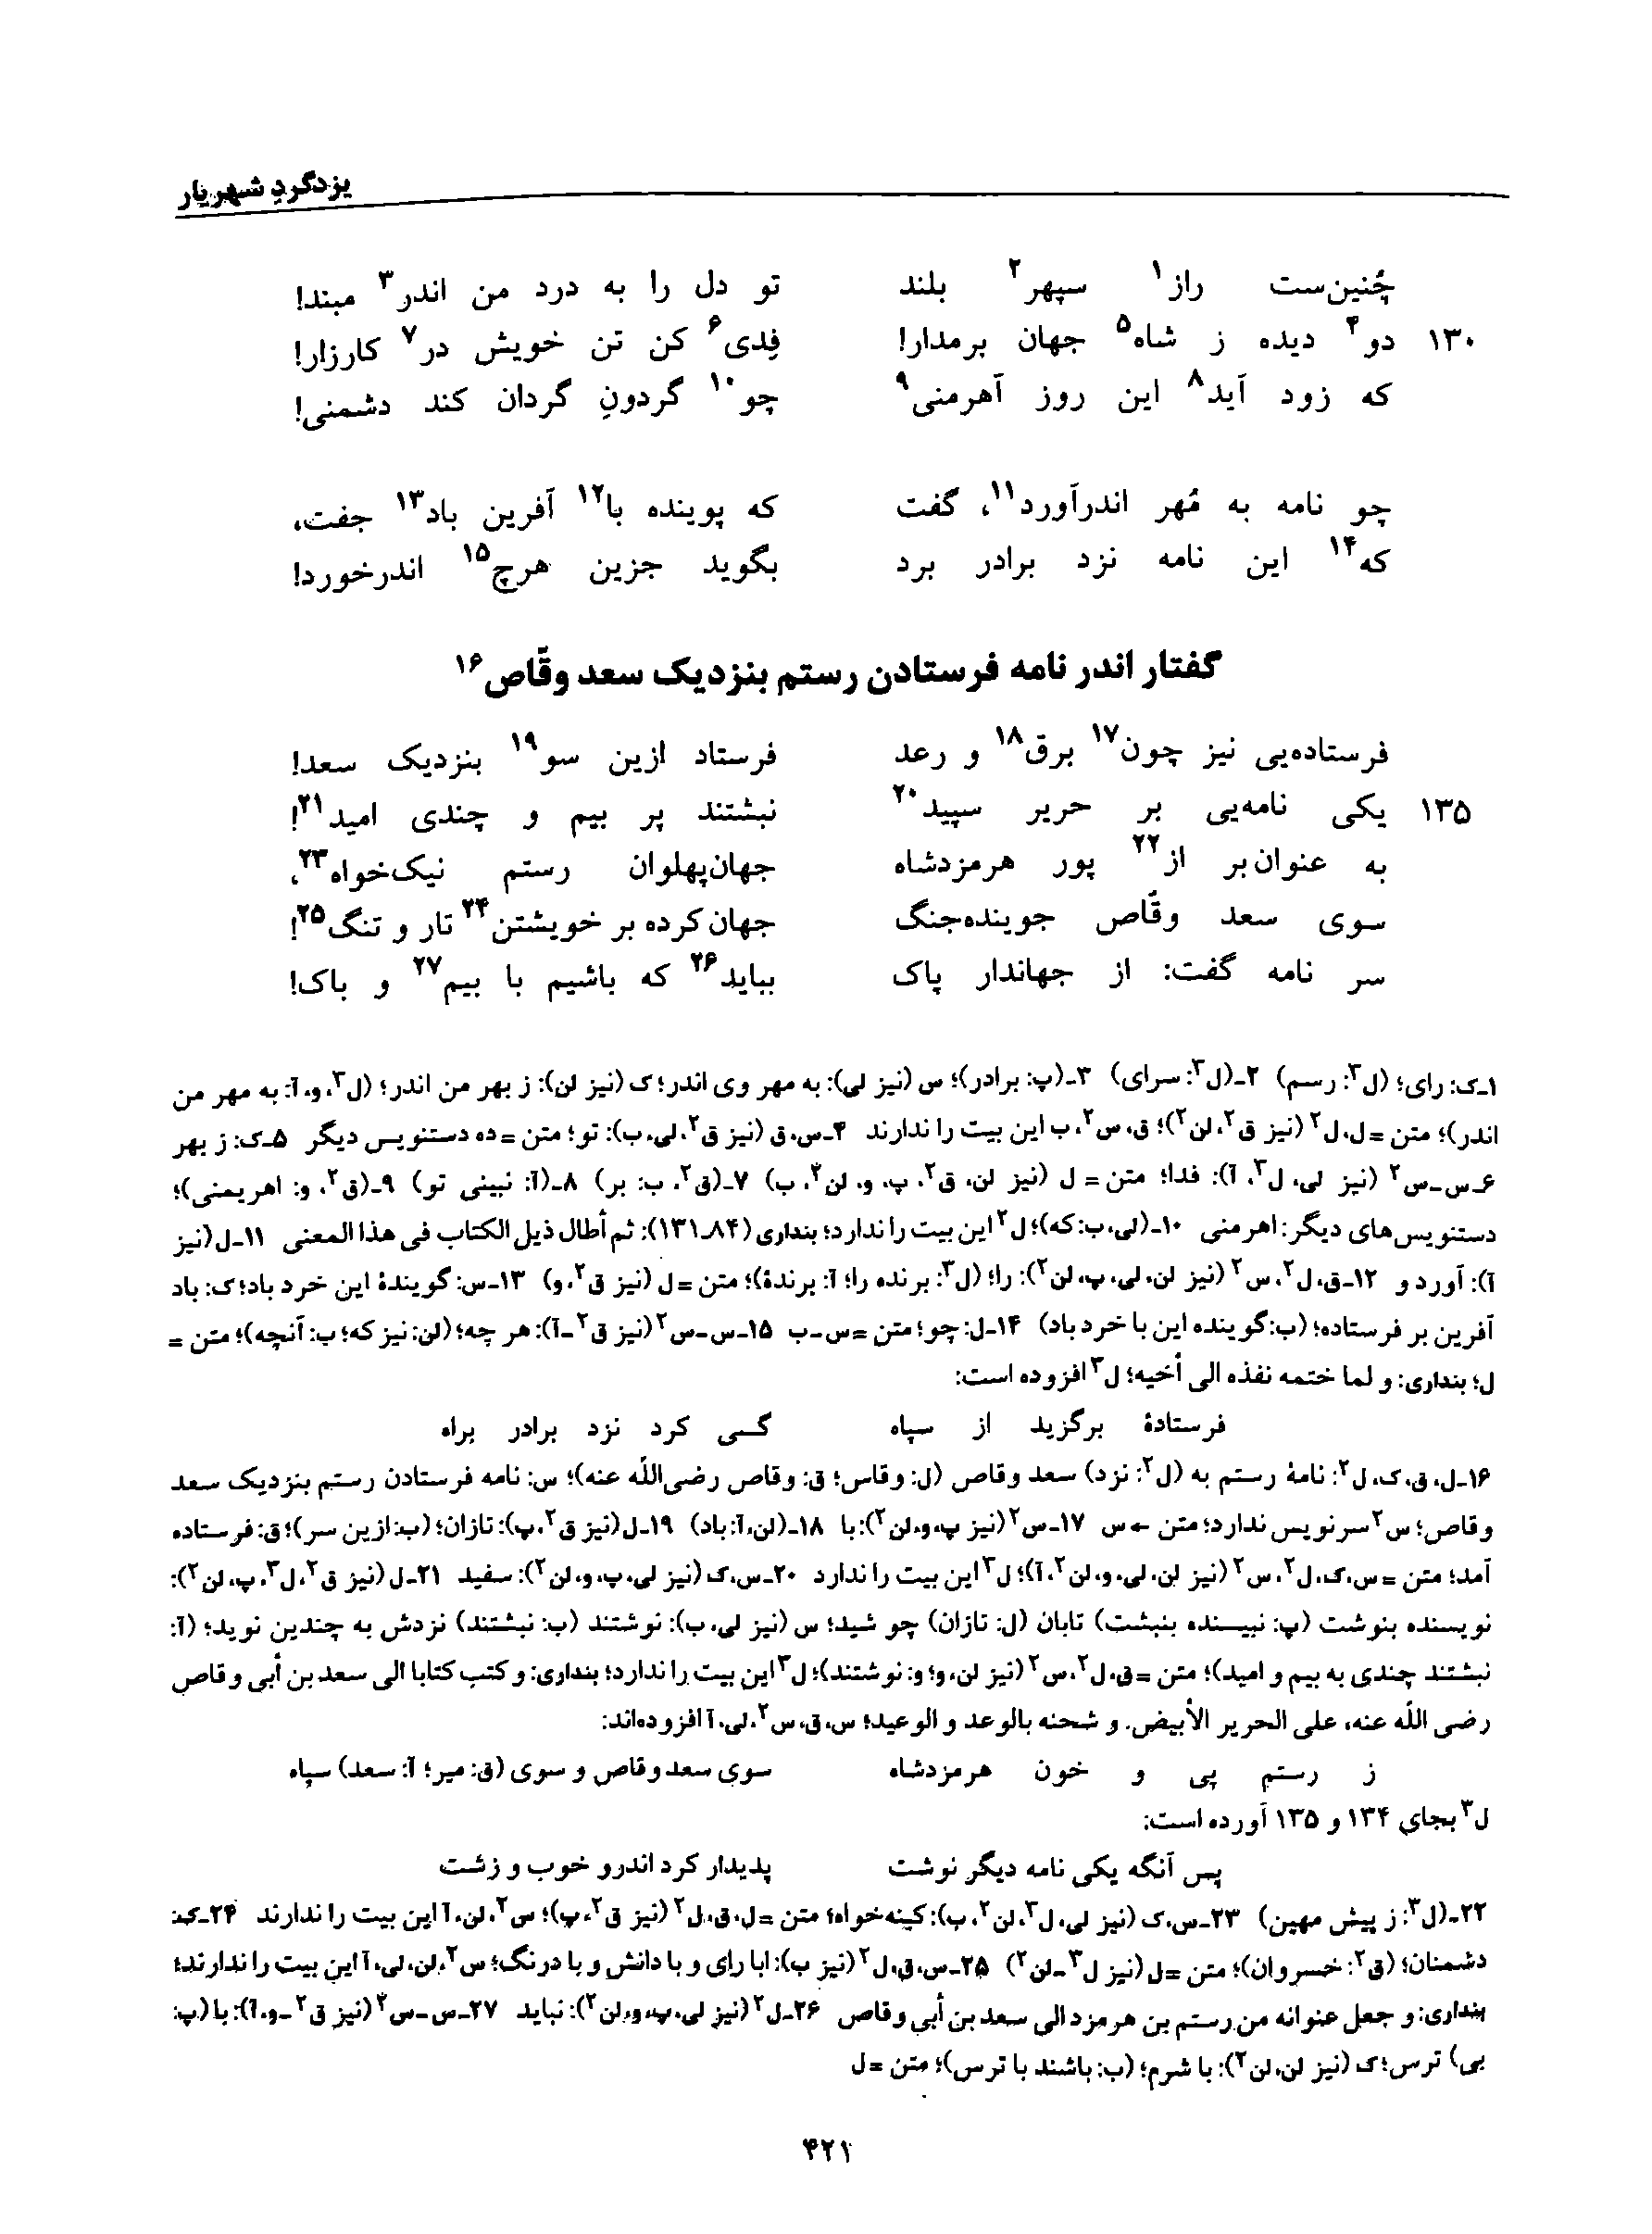 یزدگردِ شهریار
چُنین‌ست راز۱ سپهر۲ بلند تو دل را به درد من اندر۳ مبند!
۱۳۰ دو۴ دیده ز شاه۵ جهان برمدار! فِدی۶ کن تن خویش در۷ کارزار!
که زود آید۸ این روز آهرمنی۹ چو۱۰ گردونِ گردان کند دشمنی!
چو نامه به مُهر اندرآورد۱۱، گفت که پوینده با۱۲ آفرین باد۱۳ جفت،
که۱۴ این نامه نزد برادر برد بگوید جزین هرچ۱۵ اندرخورد!
گفتار اندر نامه فرستادن رستم بنزدیک سعد وقّاص۱۶
فرستاده‌یی نیز چون۱۷ برق۱۸ و رعد فرستاد ازین سو۱۹ بنزدیک سعد!
۱۳۵ یکی نامه‌یی بر حریر سپید۲۰ نبشتند پر بیم و چندی امید۲۱!
به عنوان‌بر از۲۲ پور هرمزدشاه جهان‌پهلوان رستم نیک‌خواه۲۳،
سوی سعد وقّاص جوینده‌جنگ جهان‌کرده بر خویشتن۲۴ تار و تنگ۲۵!
سر نامه گفت: از جهاندار پاک بباید۲۶ که باشیم با بیم۲۷ و باک!
۱ـ‌ک: رای؛ (ل۳: رسم) ۲ـ‌(ل۳: سرای) ۳ـ‌(پ: برادر)؛ س (نیز لی): به مهر وی اندر؛ ک (نیز لن): ز بهر من اندر؛ (ل۳، و، آ: به مهر من
اندر)؛ متن = ل، ل۲ (نیز ق۲، لن۲)؛ ق، س۲، ب این بیت را ندارند ۴ـ‌س، ق (نیز ق۲، لی، ب): تو؛ متن = ده دستنویس دیگر ۵ـ‌ک: ز بهر
۶ـ‌س‌ـ‌س۲ (نیز لی، ل۳، آ): فدا؛ متن = ل (نیز لن، ق۲، پ، و، لن۲، ب) ۷ـ‌(ق۲، ب: بر) ۸ـ‌(آ: نبینی تو) ۹ـ‌(ق۲، و: اهریمنی)؛
دستنویس‌های دیگر: اهرمنی ۱۰ـ‌(لی، ب: که)؛ ل۲ این بیت را ندارد؛ بنداری (۸۴ـ۱۳۱): ثم أطال ذیل الکتاب فی هذا المعنی ۱۱ـ‌ل (نیز
آ): آورد و ۱۲ـ‌ق، ل۲، س۲ (نیز لن، لی، پ، لن۲): را؛ (ل۳: برنده را؛ آ: برندهٔ)؛ متن = ل (نیز ق۲، و) ۱۳ـ‌س: گویندهٔ این خرد باد؛ ک: باد
آفرین بر فرستاده؛ (ب: گوینده این با خرد باد) ۱۴ـ‌ل: چو؛ متن = س‌ـ‌ب ۱۵ـ‌س‌ـ‌س۲ (نیز ق۲ـ‌آ): هر چه؛ (لن: نیز که؛ ب: آنچه)؛ متن =
ل؛ بنداری: و لما ختمه نفذه الی أخیه؛ ل۳ افزوده است:
فرستادهٔ برگزید از سپاه گسی کرد نزد برادر براه
۱۶ـ‌ل، ق، ک، ل۲: نامهٔ رستم به (ل۲: نزد) سعد وقاص (ل: وقاس؛ ق: وقاص رضی‌اللّه عنه)؛ س: نامه فرستادن رستم بنزدیک سعد
وقاص؛ س۲ سرنویس ندارد؛ متن ← س ۱۷ـ‌س۲ (نیز پ، و، لن۲): با ۱۸ـ‌(لن، آ: باد) ۱۹ـ‌ل (نیز ق۲، پ): تازان؛ (ب: ازین سر)؛ ق: فرستاده
آمد؛ متن = س، ک، ل۲، س۲ (نیز لن، لی، و، لن۲، آ)؛ ل۳ این بیت را ندارد ۲۰ـ‌س، ک (نیز لی، پ، و، لن۲): سفید ۲۱ـ‌ل (نیز ق۲، ل۳، پ، لن۲):
نویسنده بنوشت (پ: نبیسنده بنبشت) تابان (ل: تازان) چو شید؛ س (نیز لی، ب): نوشتند (ب: نبشتند) نزدش به چندین نوید؛ (آ:
نبشتند چندی به بیم و امید)؛ متن = ق، ل۲، س۲ (نیز لن، و؛ و: نوشتند)؛ ل۳ این بیت را ندارد؛ بنداری: و کتب کتابا الی سعد بن أبی وقاص
رضی اللّه عنه، علی الحریر الأبیض، و شحنه بالوعد و الوعید؛ س، ق، س۲، لی، آ افزوده‌اند:
ز رستم پی و خون هرمزدشاه سوی سعد وقاص و سوی (ق: میر؛ آ: سعد) سپاه
ل۳ بجای ۱۳۴ و ۱۳۵ آورده است:
پس آنگه یکی نامه دیگر نوشت پدیدار کرد اندرو خوب و زشت
۲۲ـ‌(ل۳: ز پیش مهین) ۲۳ـ‌س، ک (نیز لی، ل۳، لن۲، ب): کینه‌خواه؛ متن = ل، ق، ل۲ (نیز ق۲، پ)؛ س۲، لن، آ این بیت را ندارند ۲۴ـ‌ک:
دشمنان؛ (ق۲: خسروان)؛ متن = ل (نیز ل۳ـ‌لن۲) ۲۵ـ‌س، ق، ل۲ (نیز ب): ابا رای و با دانش و با درنگ؛ س۲، لن، لی، آ این بیت را ندارند؛
بنداری: و جعل عنوانه من رستم بن هرمزد الی سعد بن أبی وقاص ۲۶ـ‌ل۲ (نیز لی، پ، و، لن۲): نباید ۲۷ـ‌س‌ـ‌س۲ (نیز ق۲ـ‌و، آ): با (پ:
بی) ترس؛ ک (نیز لن، لن۲): با شرم؛ (ب: باشند با ترس)؛ متن = ل
۴۲۱